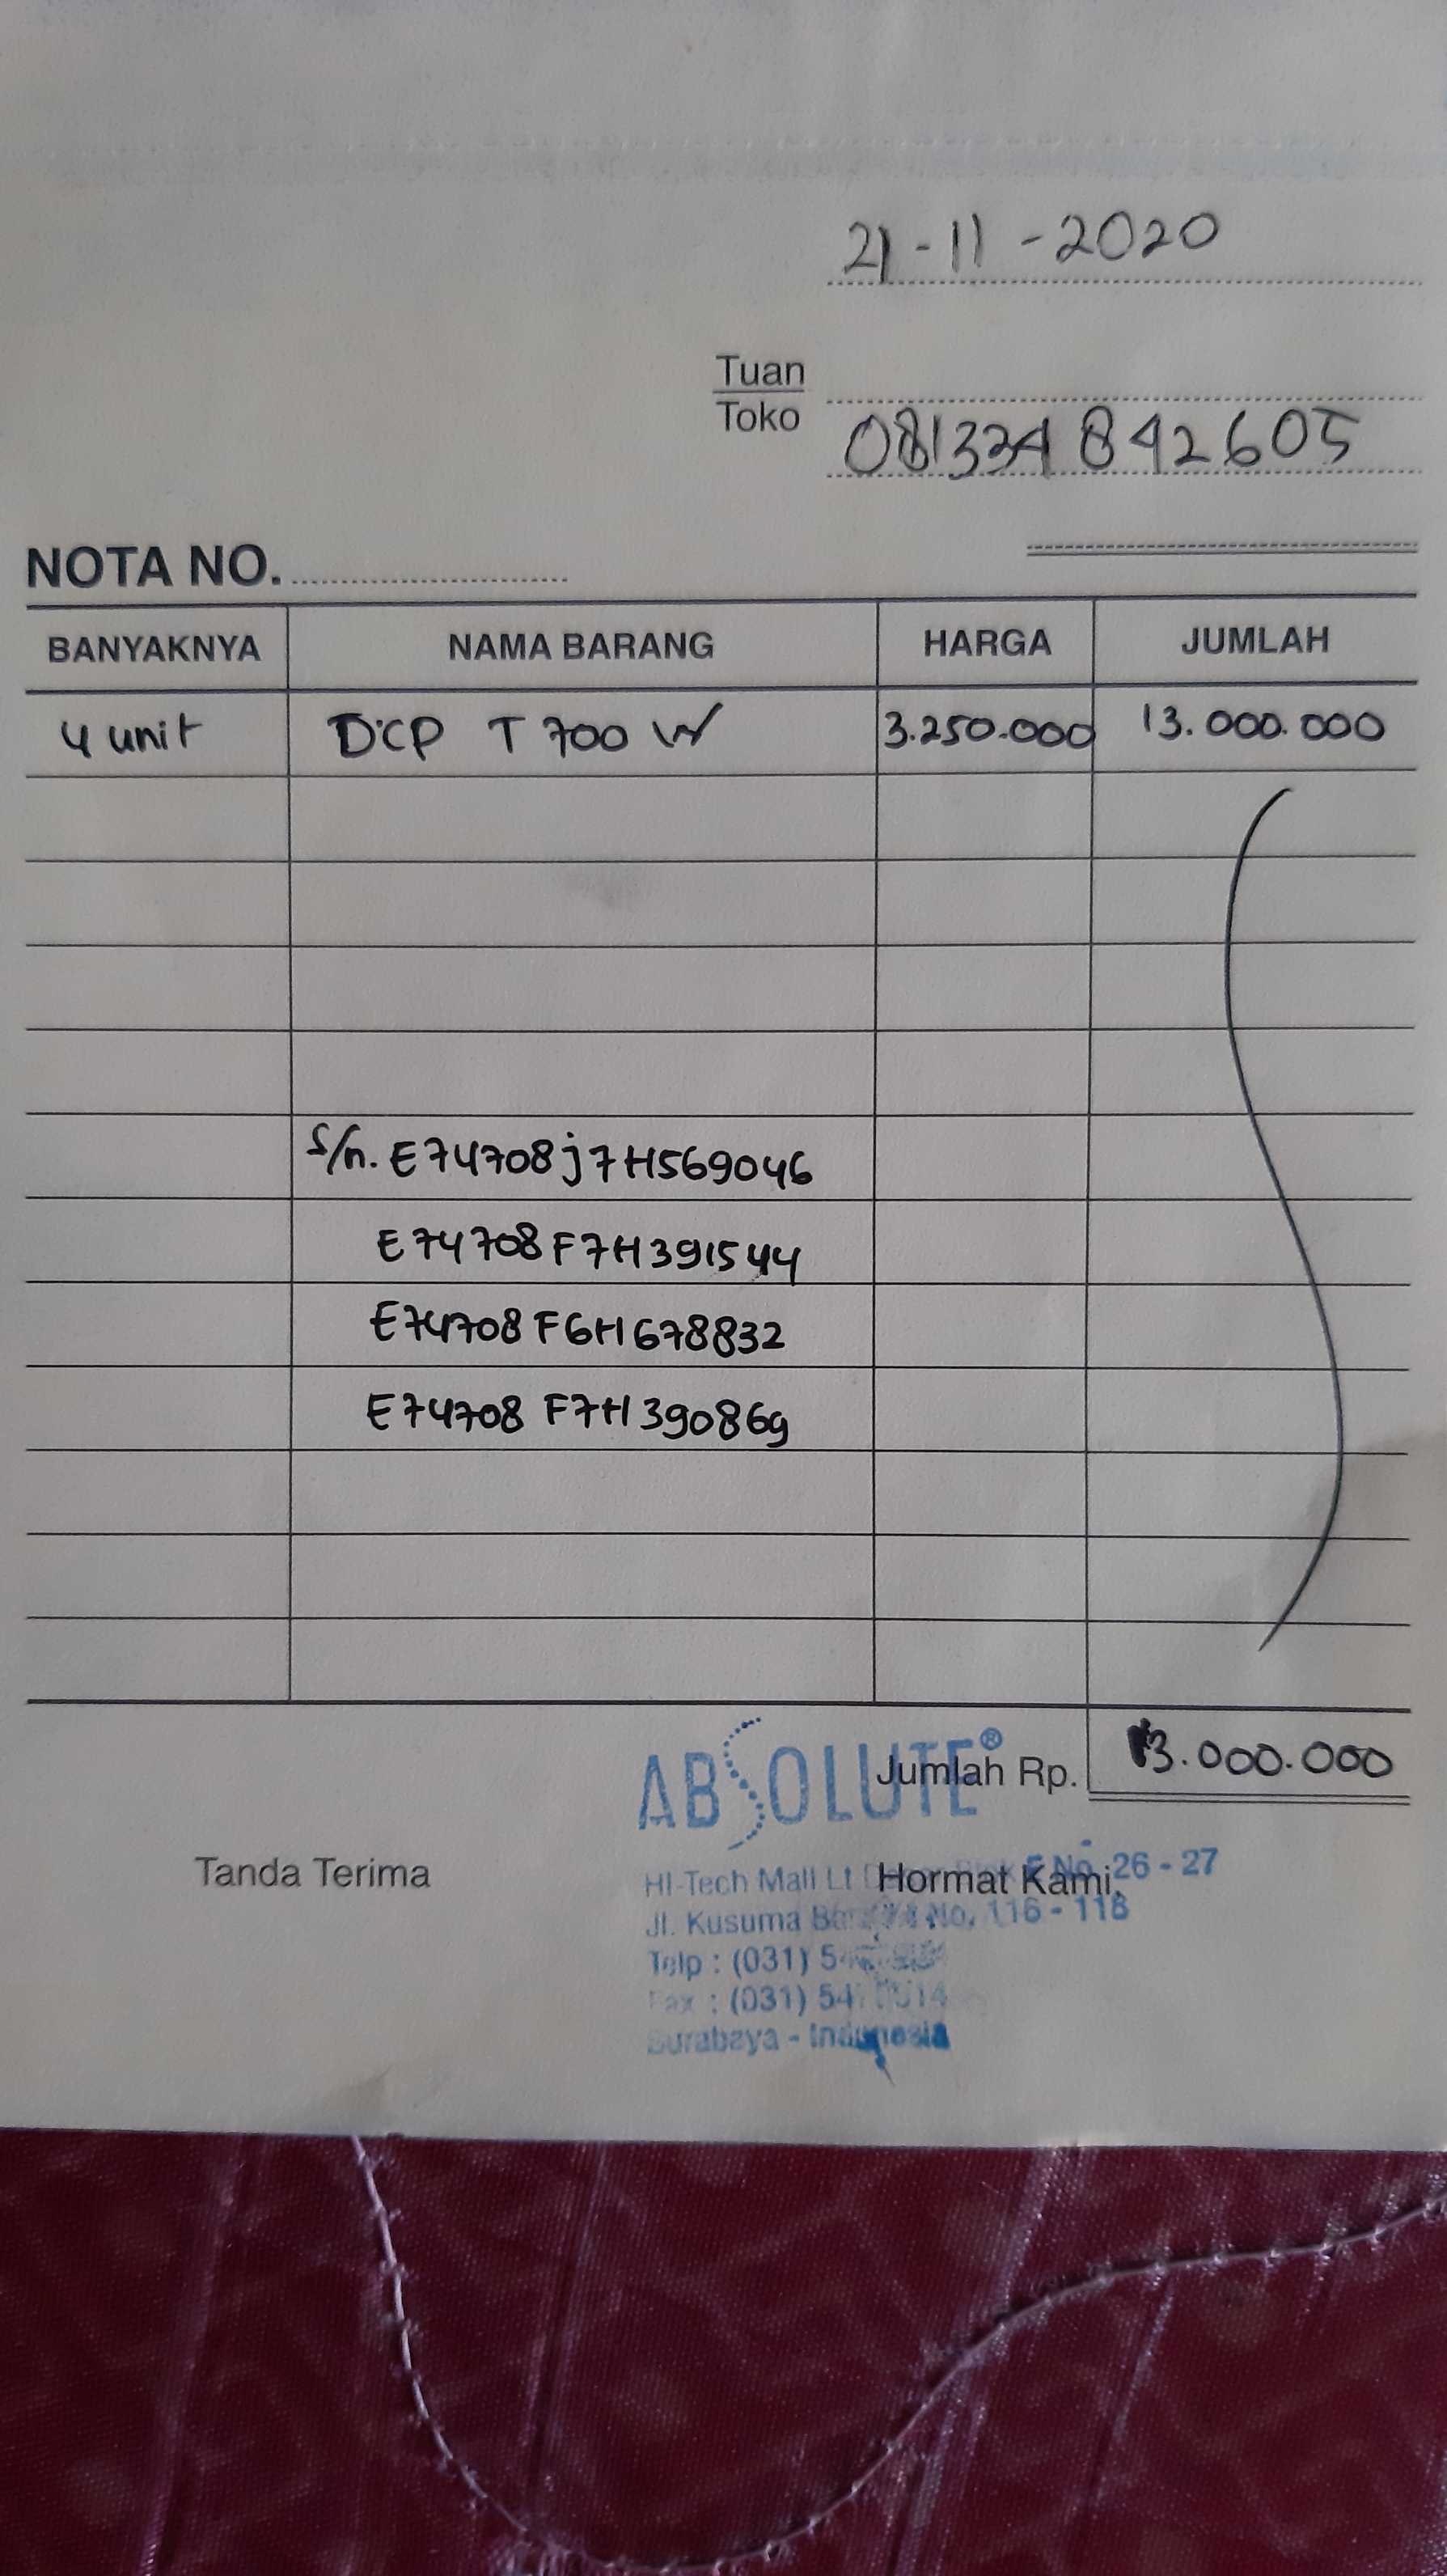 21-11-2020
Tuan
Toko
081334842605
NOTA NO.
BANYAKNYA NAMA BARANG HARGA JUMLAH
4 unit DCP T 700 W 3.250.000 13.000.000
S/n. E74708j7H569046
E74708F7H391544
E74708F6H678832
E74708F7H390869
ABSOLUTE®
Jumlah Rp. 13.000.000
Tanda Terima Hormat Kami,
HI-Tech Mall Lt No. 26 - 27
Jl. Kusuma No. 116 - 118
Telp : (031)
Fax : (031)
Surabaya - Indonesia